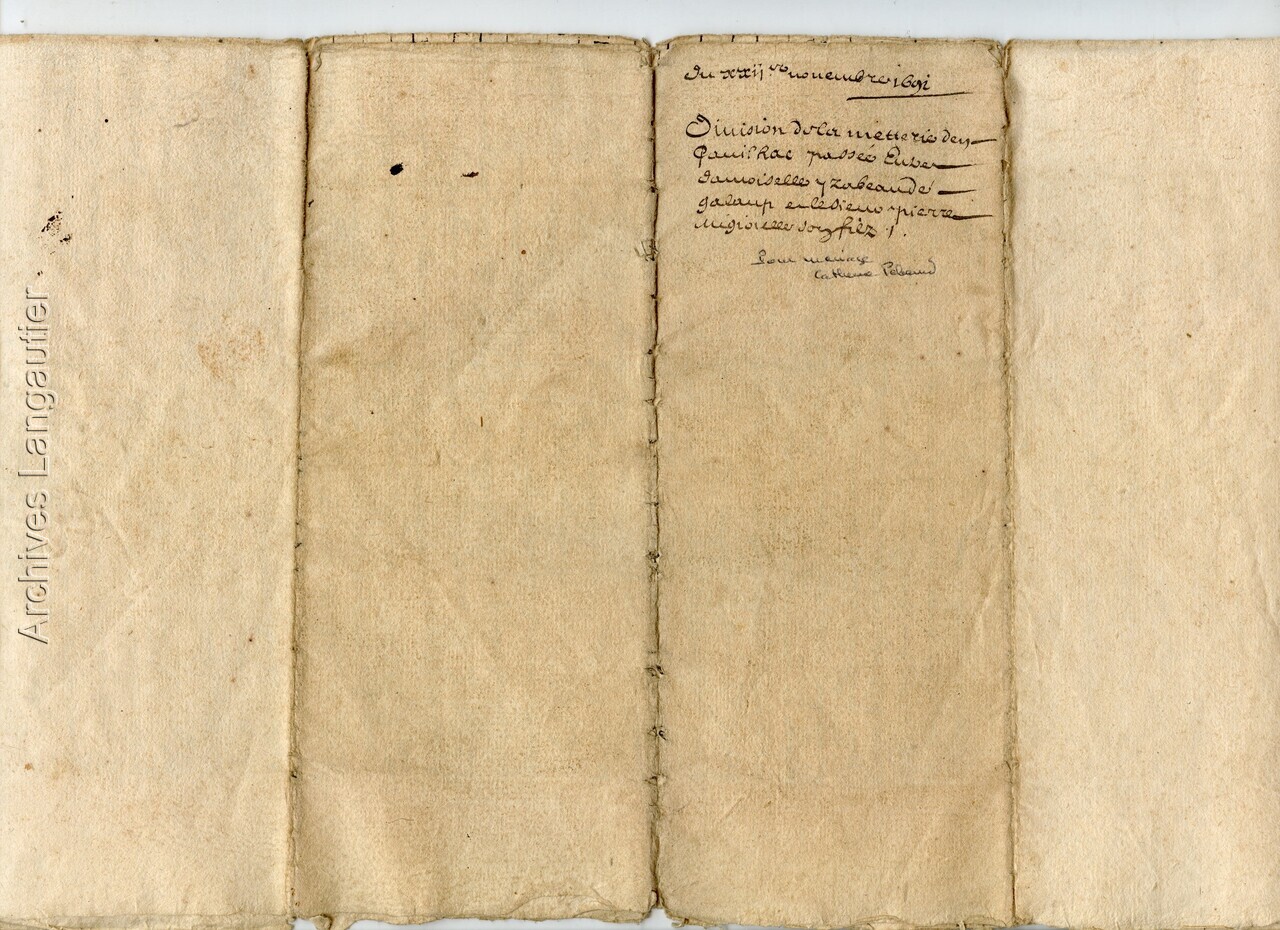 du xxii novembre 1691
Division de la metterie den
Pauilhac passée Entre
damoiselle yzabeau de
galaup et le Sieur pierre
Migiorelle son filz
Pour
Catherine
Archives Langautier -